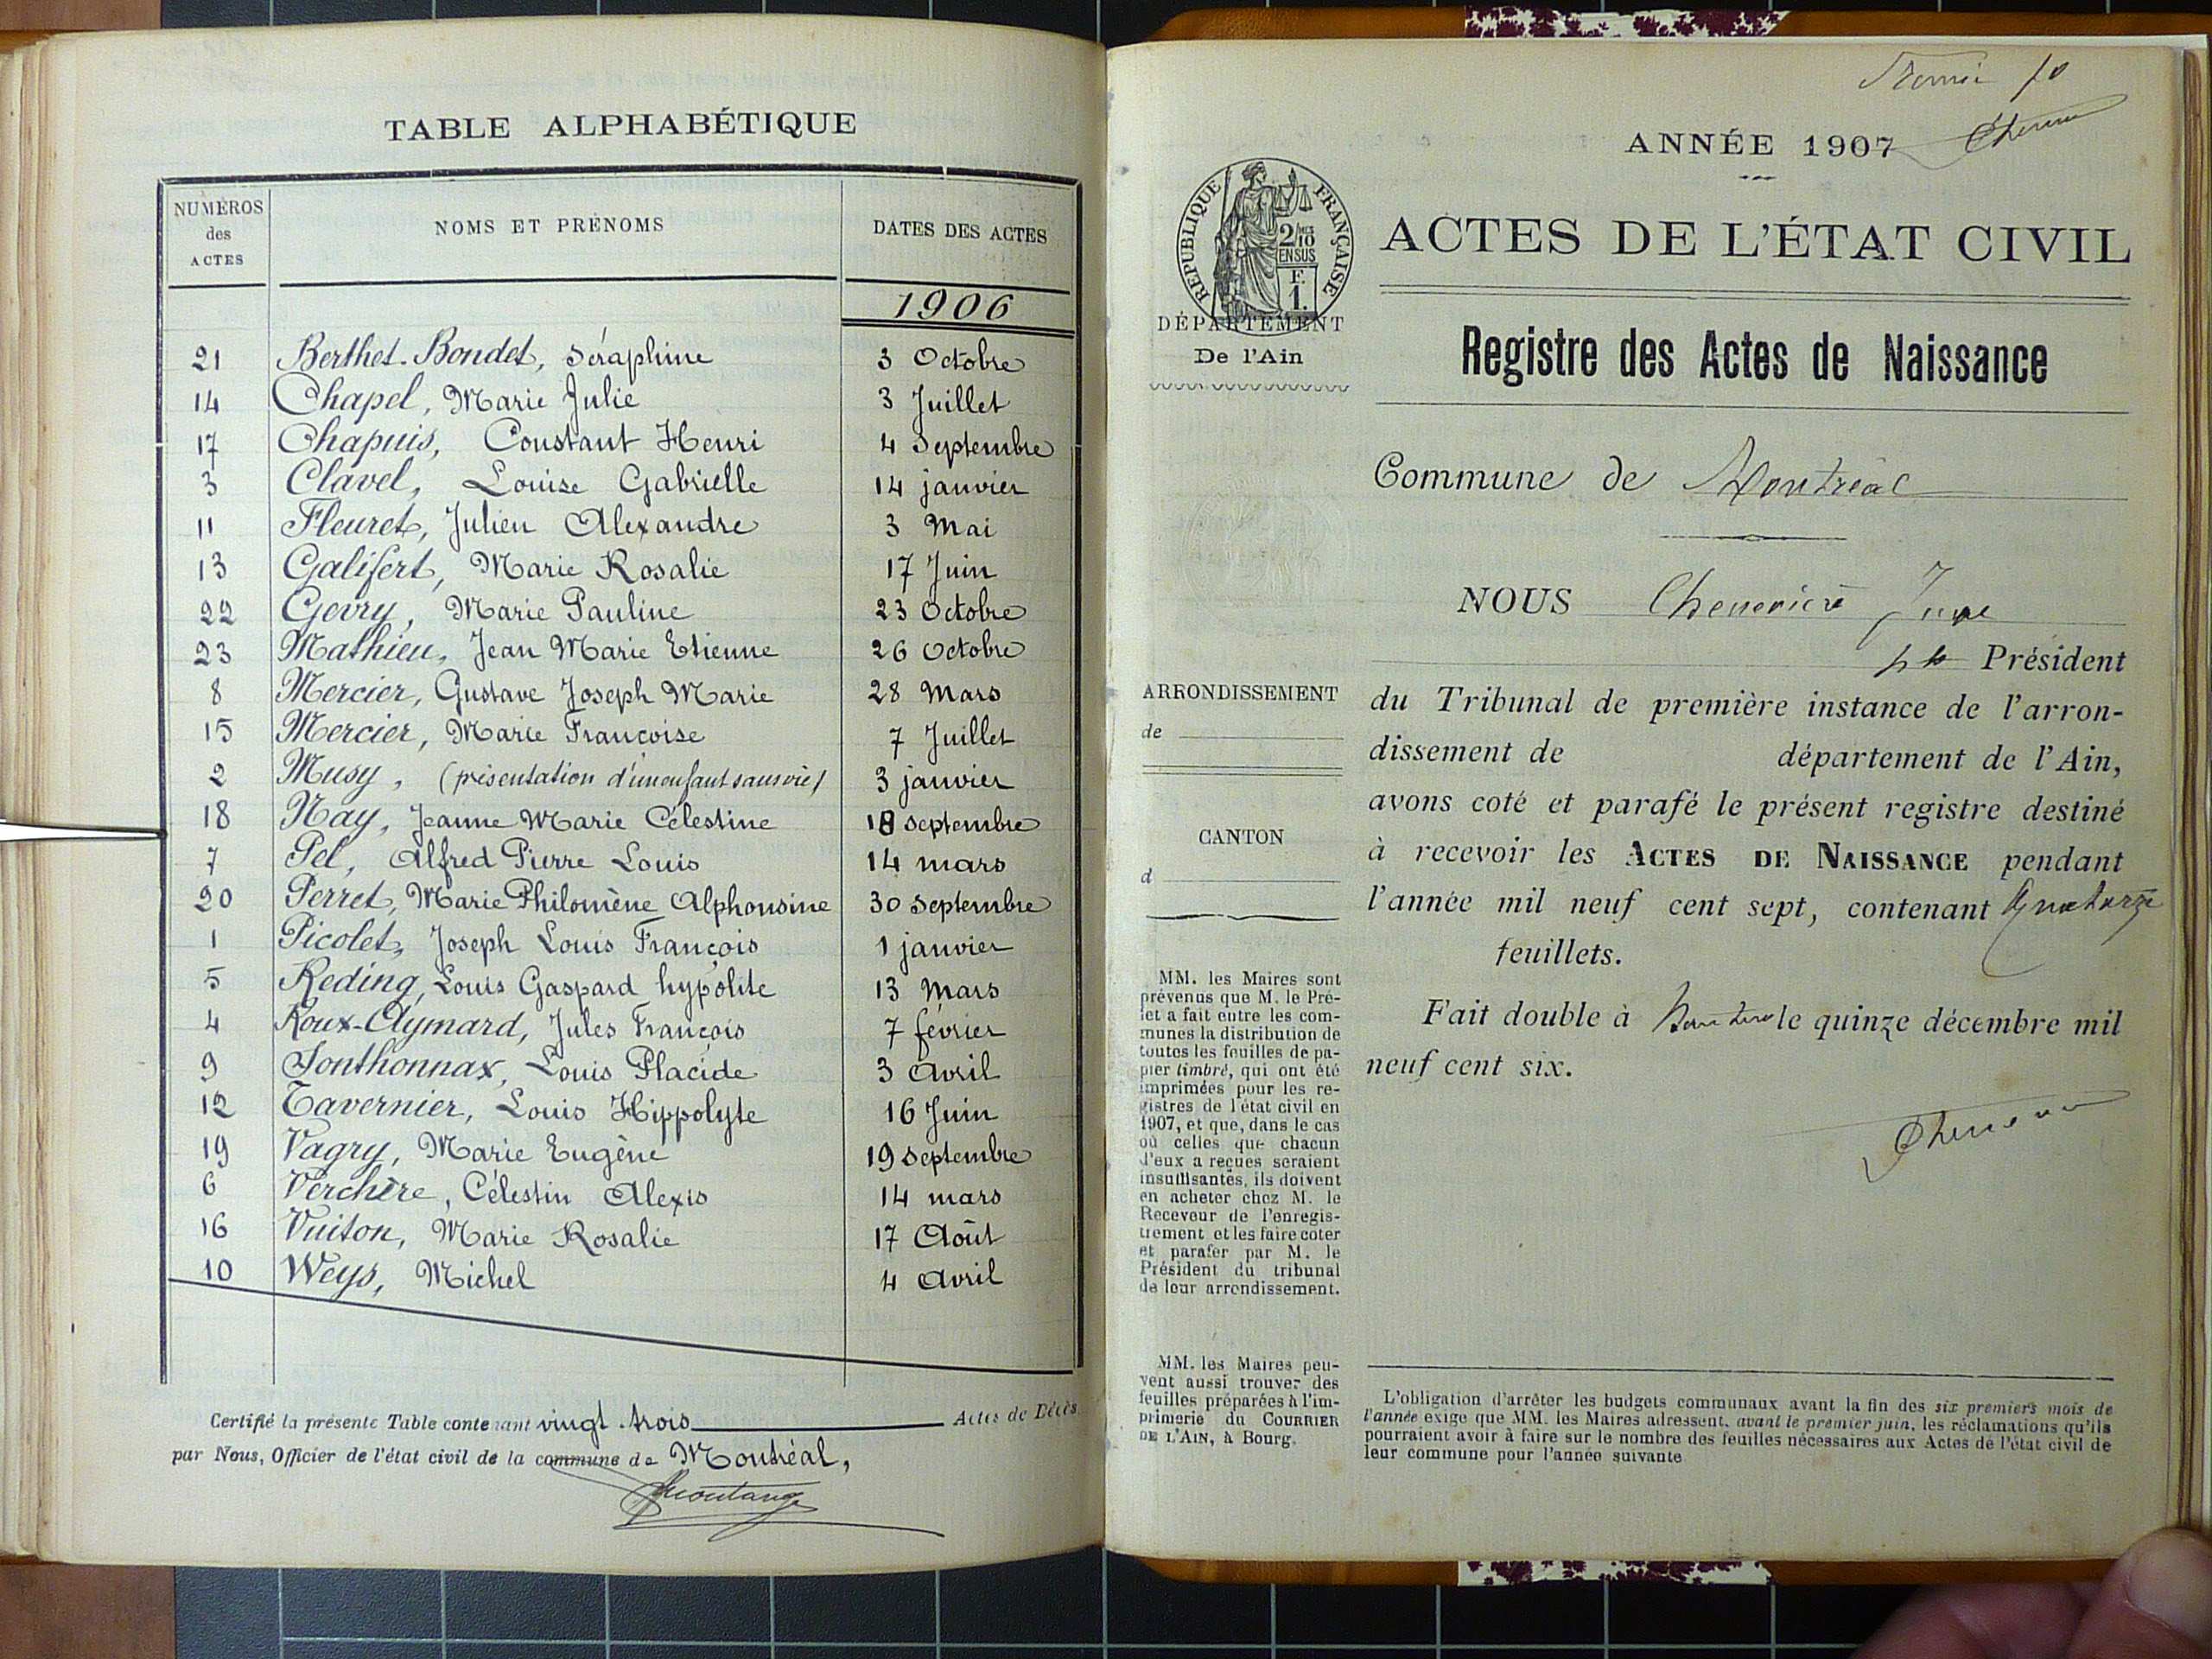 TABLE ALPHABÉTIQUE
NUMÉROS des ACTES
NOMS ET PRÉNOMS
DATES DES ACTES
1906
21 Berthet-Bondet, Séraphine 3 Octobre
14 Chapel, Marie Julie 3 Juillet
17 Chapuis, Constant Henri 4 Septembre
3 Clavel, Louise Gabrielle 14 janvier
11 Fleuret, Julien Alexandre 3 Mai
13 Galifert, Marie Rosalie 17 Juin
22 Gevry, Marie Pauline 23 Octobre
23 Mathieu, Jean Marie Etienne 26 Octobre
8 Mercier, Gustave Joseph Marie 28 Mars
15 Mercier, Marie Françoise 7 Juillet
2 Musy, (présentation d'un enfant sans vie) 3 janvier
18 Nay, Jeanne Marie Célestine 18 septembre
7 Pel, Alfred Pierre Louis 14 mars
20 Perret, Marie Philomène Alphonsine 30 septembre
1 Picolet, Joseph Louis François 1 janvier
5 Reding, Louis Gaspard hypolite 13 Mars
4 Roux-Aymard, Jules François 7 février
9 Sonthonnax, Louis Placide 3 Avril
12 Tavernier, Louis Hippolyte 16 Juin
19 Vagry, Marie Eugène 19 septembre
6 Verchère, Célestin Alexis 14 mars
16 Vuiton, Marie Rosalie 17 Août
10 Weys, Michel 4 Avril
Certifié la présente Table contenant vingt-trois Actes de Décès
par Nous, Officier de l'état civil de la commune de Montréal,
ANNÉE 1907
RÉPUBLIQUE FRANÇAISE
2/10 EN SUS
F. 1.
ACTES DE L'ÉTAT CIVIL
DÉPARTEMENT
De l'Ain
Registre des Actes de Naissance
Commune de Montréal
NOUS Juge
Président
ARRONDISSEMENT
de
du Tribunal de première instance de l'arron-
dissement de département de l'Ain,
avons coté et parafé le présent registre destiné
CANTON
d
à recevoir les ACTES DE NAISSANCE pendant
l'année mil neuf cent sept, contenant quatorze
feuillets.
Fait double à le quinze décembre mil
neuf cent six.
MM. les Maires sont
prévenus que M. le Pré-
fet a fait entre les com-
munes la distribution de
toutes les feuilles de pa-
pier timbré, qui ont été
imprimées pour les re-
gistres de l'état civil en
1907, et que, dans le cas
où celles que chacun
d'eux a reçues seraient
insuffisantes, ils doivent
en acheter chez M. le
Receveur de l'enregis-
trement et les faire coter
et parafer par M. le
Président du tribunal
de leur arrondissement.
MM. les Maires peu-
vent aussi trouver des
feuilles préparées à l'im-
primerie du COURRIER
DE L'AIN, à Bourg.
L'obligation d'arrêter les budgets communaux avant la fin des six premiers mois de
l'année exige que MM. les Maires adressent, avant le premier juin, les réclamations qu'ils
pourraient avoir à faire sur le nombre des feuilles nécessaires aux Actes de l'état civil de
leur commune pour l'année suivante